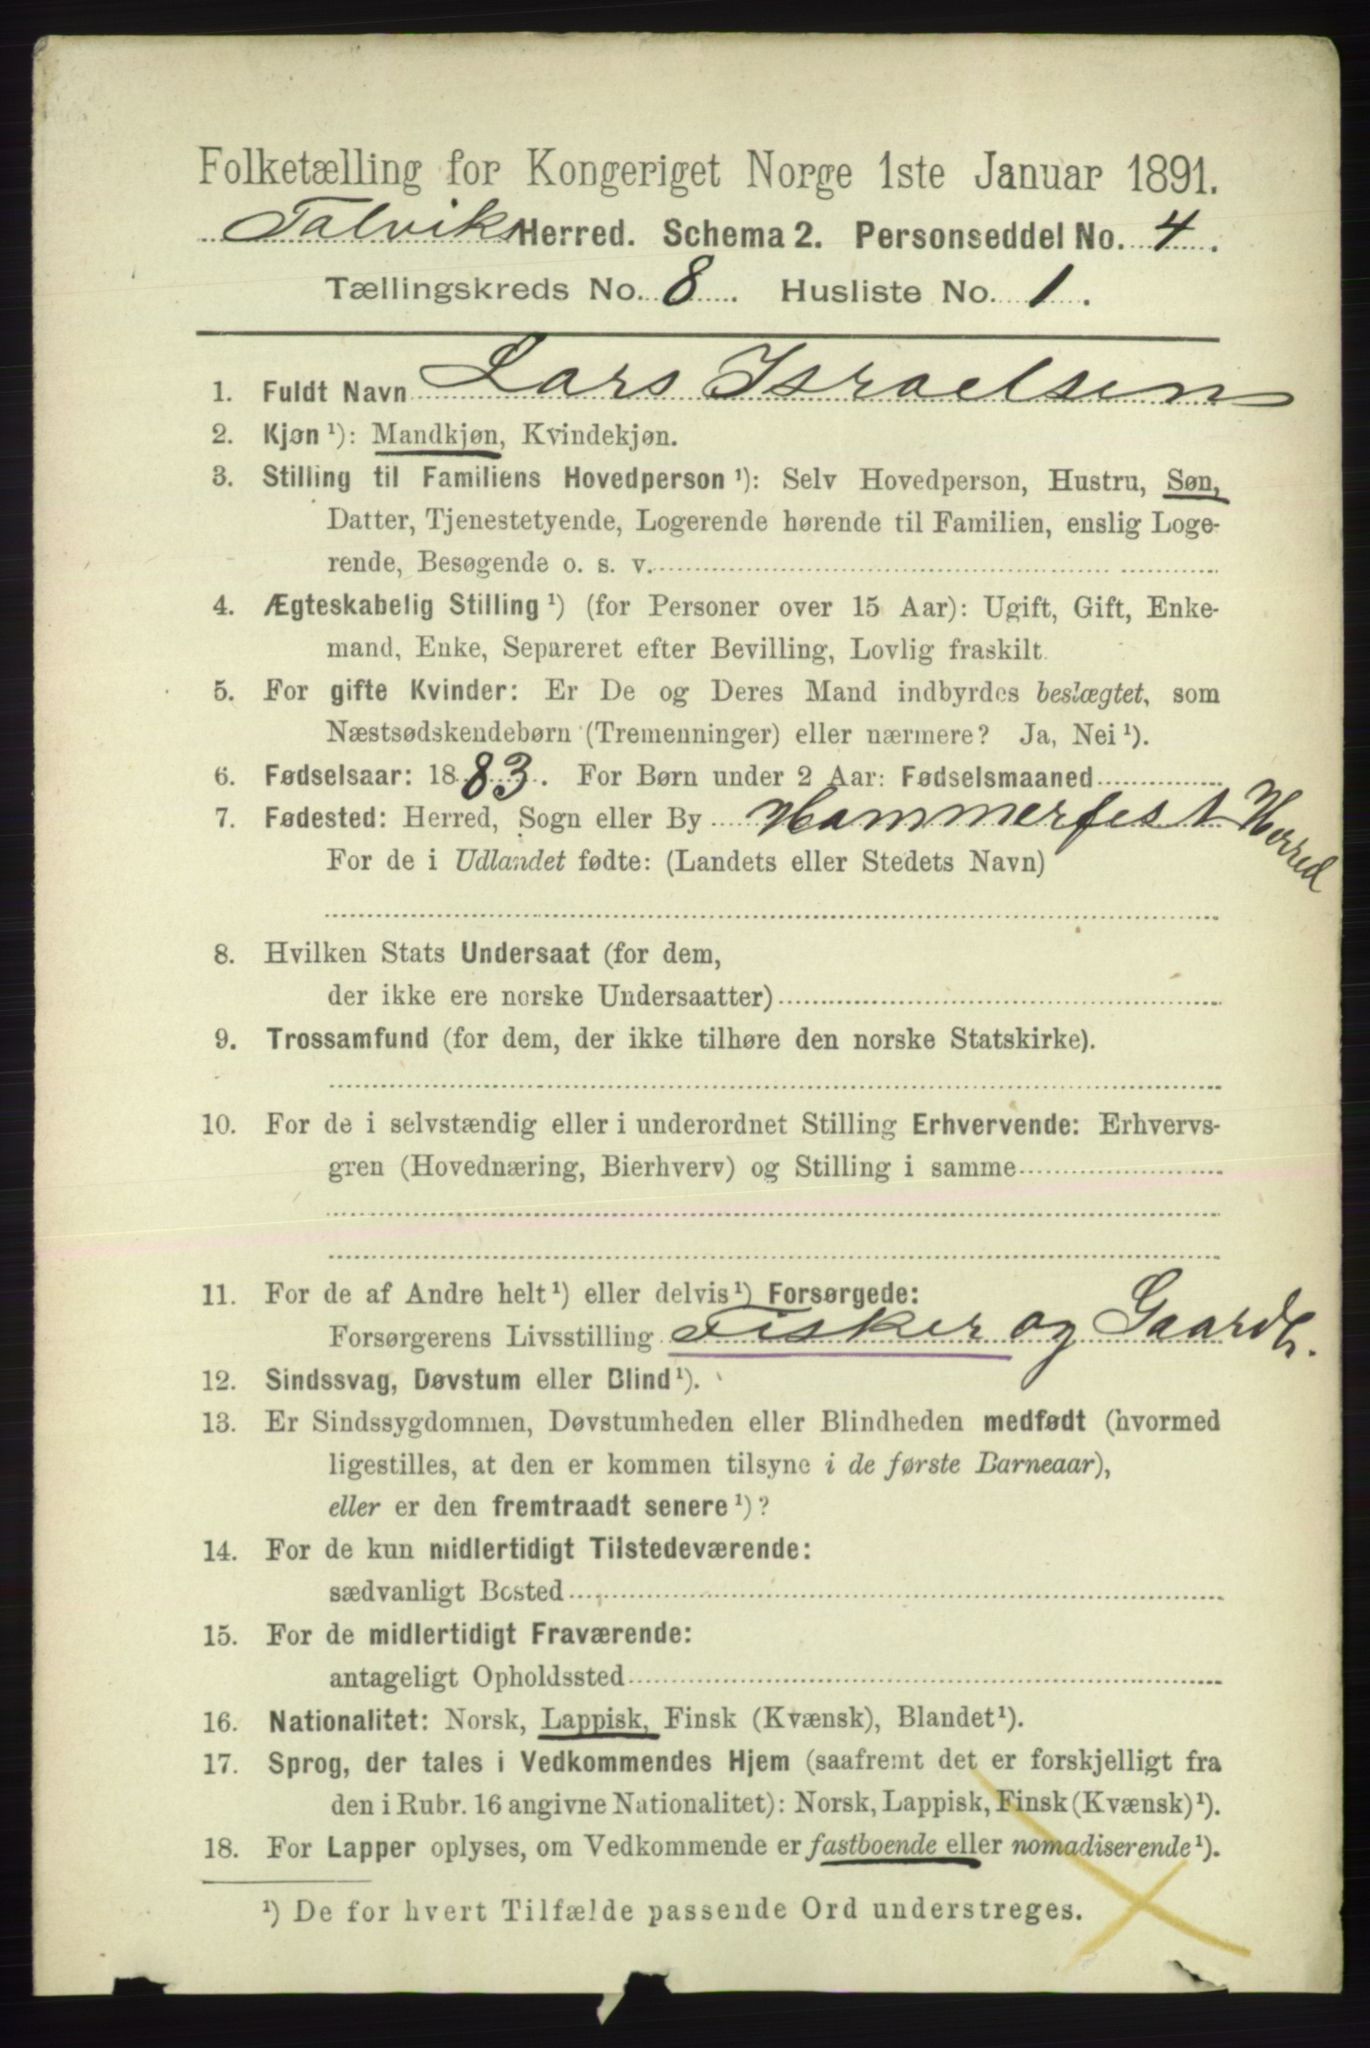 Folketælling for Kongeriget Norge 1ste Januar 1891.
Talviks Herred. Schema 2. Personseddel No. 4.
Tællingskreds No. 8. Husliste No. 1.
1. Fuldt Navn Lars Israelsen
2. Kjøn ¹): Mandkjøn, Kvindekjøn.
3. Stilling til Familiens Hovedperson ¹): Selv Hovedperson, Hustru, Søn,
Datter, Tjenestetyende, Logerende hørende til Familien, enslig Loge-
rende, Besøgende o. s. v.
4. Ægteskabelig Stilling ¹) (for Personer over 15 Aar): Ugift, Gift, Enke-
mand, Enke, Separeret efter Bevilling, Lovlig fraskilt
5. For gifte Kvinder: Er De og Deres Mand indbyrdes beslægtet, som
Næstsødskendebørn (Tremenninger) eller nærmere? Ja, Nei ¹).
6. Fødselsaar: 1883. For Børn under 2 Aar: Fødselsmaaned
7. Fødested: Herred, Sogn eller By Hammerfest Herred
For de i Udlandet fødte: (Landets eller Stedets Navn)
8. Hvilken Stats Undersaat (for dem,
der ikke ere norske Undersaatter)
9. Trossamfund (for dem, der ikke tilhøre den norske Statskirke).
10. For de i selvstændig eller i underordnet Stilling Erhvervende: Erhvervs-
gren (Hovednæring, Bierhverv) og Stilling i samme
11. For de af Andre helt ¹) eller delvis ¹) Forsørgede:
Forsørgerens Livsstilling Fisker og Gaardb.
12. Sindssvag, Døvstum eller Blind ¹).
13. Er Sindssygdommen, Døvstumheden eller Blindheden medfødt (hvormed
ligestilles, at den er kommen tilsyne i de første Barneaar),
eller er den fremtraadt senere ¹)?
14. For de kun midlertidigt Tilstedeværende:
sædvanligt Bosted
15. For de midlertidigt Fraværende:
antageligt Opholdssted
16. Nationalitet: Norsk, Lappisk, Finsk (Kvænsk), Blandet ¹).
17. Sprog, der tales i Vedkommendes Hjem (saafremt det er forskjelligt fra
den i Rubr. 16 angivne Nationalitet): Norsk, Lappisk, Finsk (Kvænsk) ¹).
18. For Lapper oplyses, om Vedkommende er fastboende eller nomadiserende ¹).
¹) De for hvert Tilfælde passende Ord understreges.